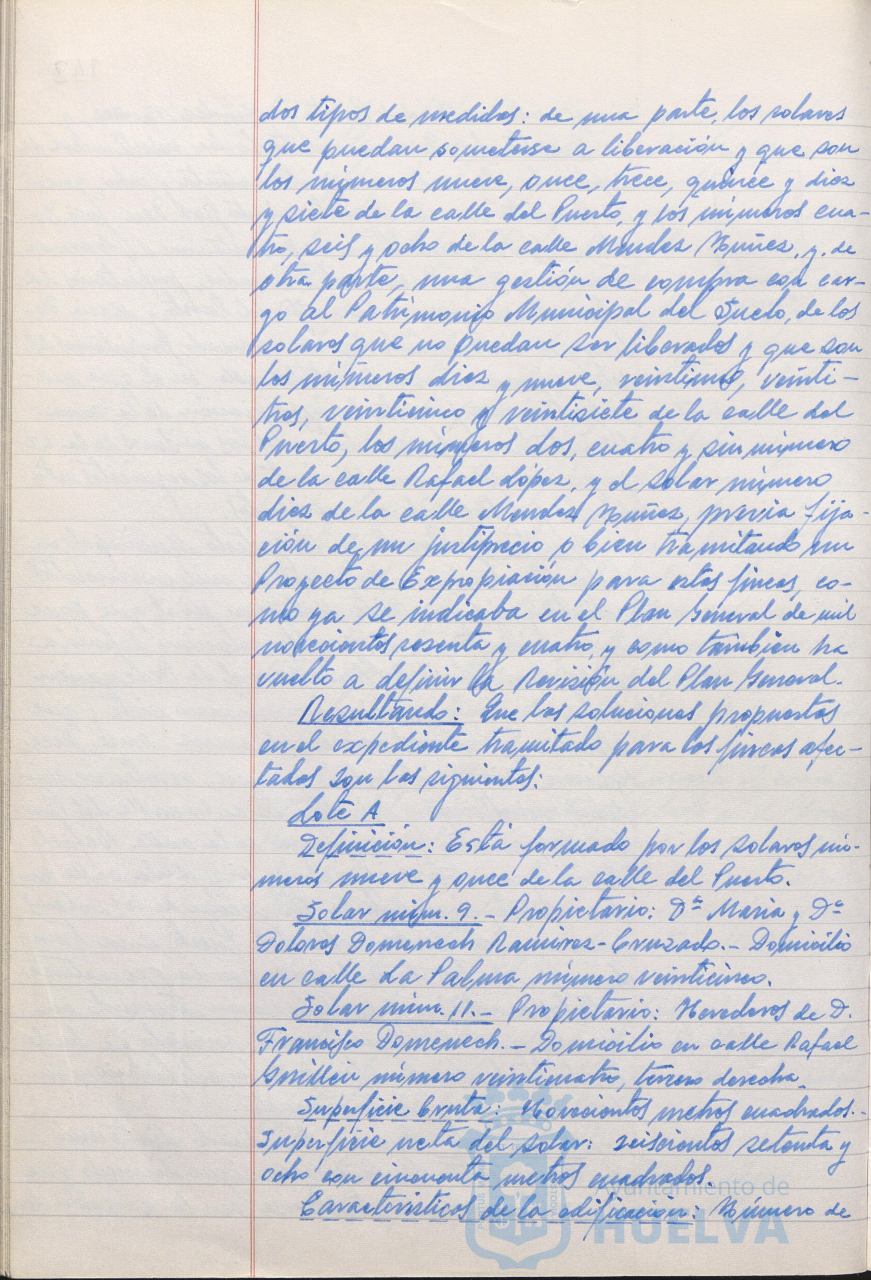 dos tipos de medidas: de una parte, los solares
que puedan someterse a liberación y que son
los números nueve, once, trece, quince y diez
y siete de la calle del Puerto, y los números cua-
tro, seis y ocho de la calle Mendez Núñez, y de
otra parte, una gestión de compra con car-
go al Patrimonio Municipal del Suelo, de los
solares que no puedan ser liberados y que son
los números diez y nueve, veintiuno, veinti-
tres, veinticinco y veintisiete de la calle del
Puerto, los números dos, cuatro y sin número
de la calle Rafael López, y el solar número
diez de la calle Mendez Núñez, previa fija-
ción de un justiprecio o bien tramitando un
Proyecto de Expropiación para estas fincas, co-
mo ya se indicaba en el Plan General de mil
novecientos sesenta y cuatro, y como también ha
vuelto a definir la Revisión del Plan General.
Resultando: Que las soluciones propuestas
en el expediente tramitado para las fincas afec-
tadas son las siguientes:
Lote A
Definición: Está formado por los solares nú-
meros nueve y once de la calle del Puerto.
Solar núm. 9.- Propietario: Dª María y Dª
Dolores Domenech Ramírez-Cruzado.- Domicilio
en calle La Palma número veinticinco.
Solar núm. 11.- Propietario: Herederos de D.
Francisco Domenech.- Domicilio en calle Rafael
Guillén número veinticuatro, tercero derecha.
Superficie bruta: Novecientos metros cuadrados.-
Superficie neta del solar: seiscientos setenta y
ocho con cincuenta metros cuadrados.
Características de la edificación: Número de
Ayuntamiento de
HUELVA